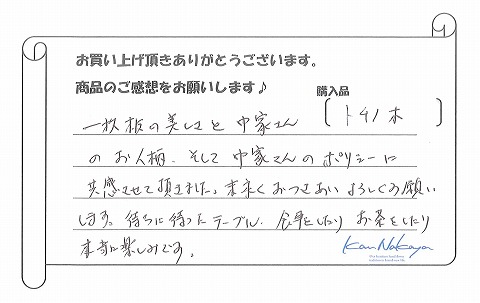 お買い上げ頂きありがとうございます。
商品のご感想をお願いします♪
購入品
トチノ木
一枚板の美しさと中家さん
のお人柄、そして中家さんのポリシーに
共感させて頂きました。末永くおつきあいよろしくお願い
します。待ちに待ったテーブル、食事をしたりお茶をしたり
本当に楽しみです。
Kan Nakaya